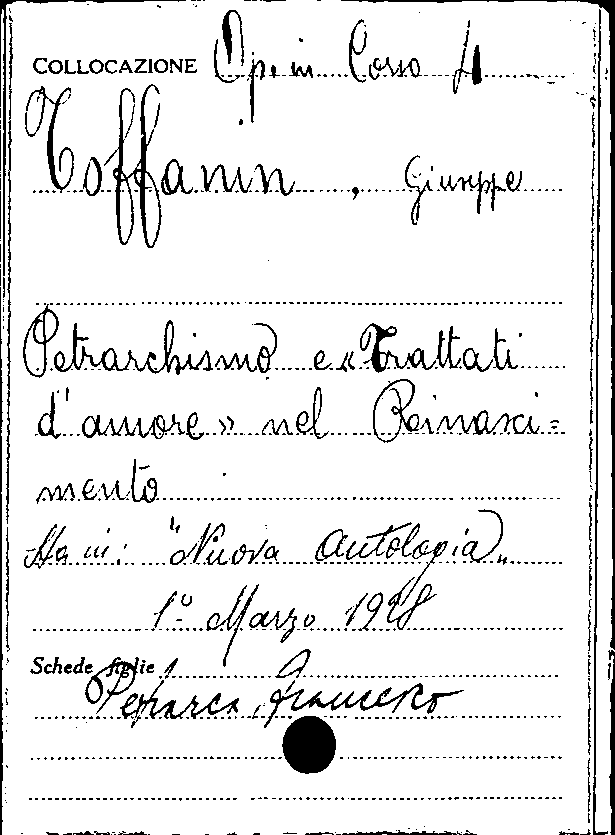 COLLOCAZIONE Op. in Corso 4
Toffanin, Giuseppe
Petrarchismo e «Trattati
d'amore» nel Rinasci=
mento
Sta in: "Nuova Antologia"
1° Marzo 1928
Schede figlie
Petrarca, Francesco